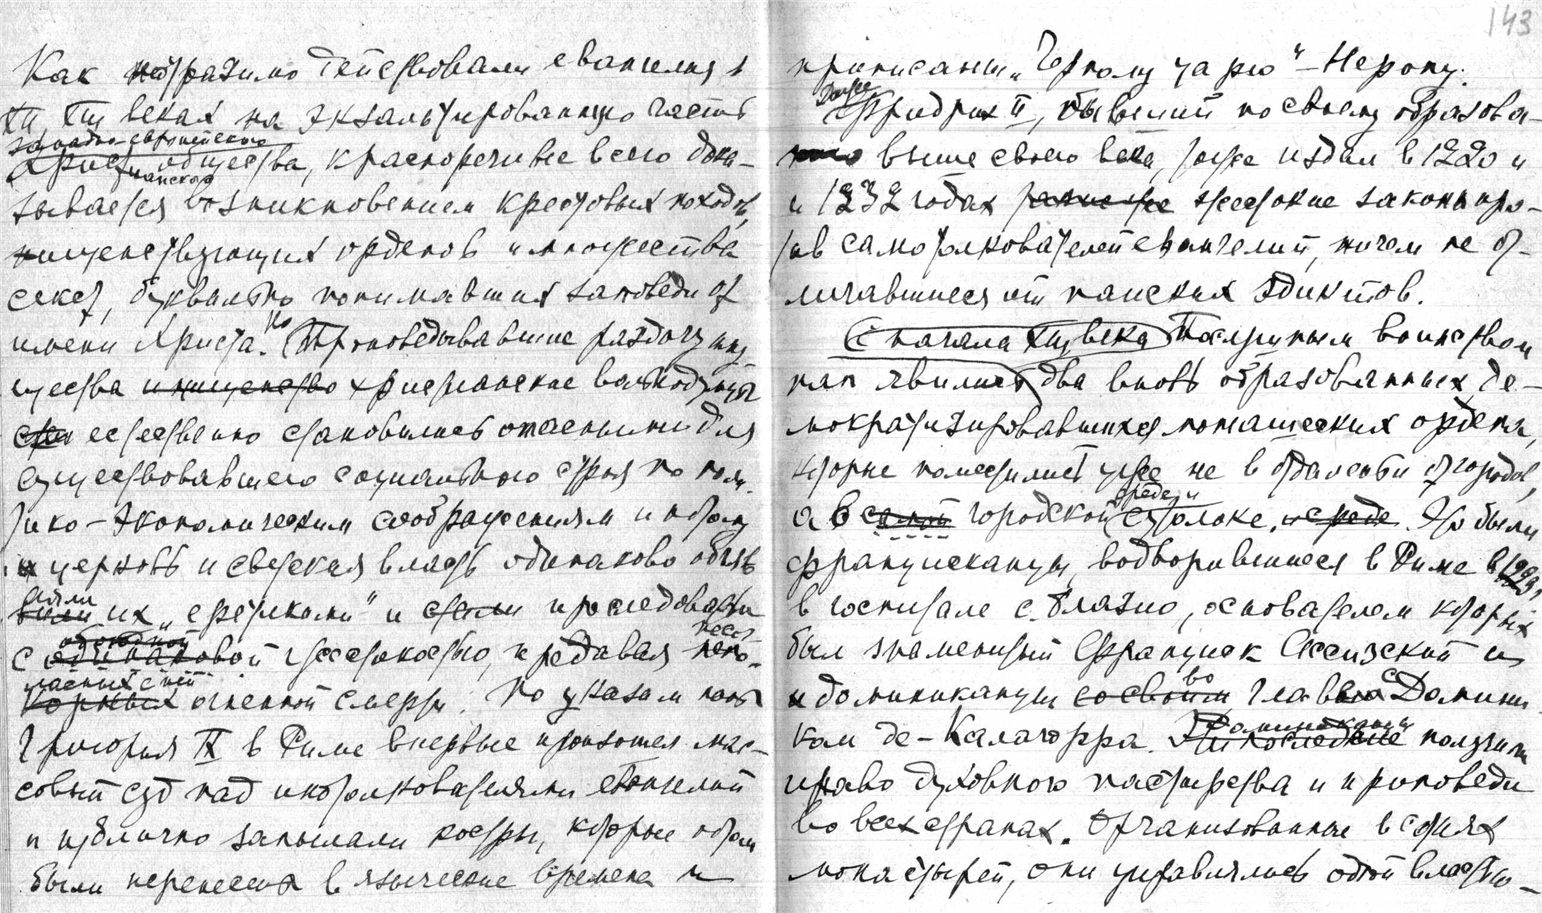 Как неотразимо действовали евангелия в
XII XIII веках на экзальтированную часть
западно-европейского
христианского общества, красноречивее всего дока-
зывается возникновением крестовых походов,
нищенствующих орденов и множества
сект, буквально понимавших заповеди от
имени Христа. Но Проповедывавшие раздачу иму-
щества и нищенство христианские вольнодумцы
естественно становились опасными для
существовавшего социального строя по поли-
тико-экономическим соображениям и потому
и церковь и светская власть одинаково объяв-
вили их „еретиками" и стали преследовать
с одинаковой жестокостью, предавая несо-
гласных с ней огненной смерти. По указам папы
Григория IX в Риме впервые произошел мас-
совый суд над истолкователями евангелий
и публично запылали костры, которые потом
были перенесены в языческие времена и
143
приписаны „Черному царю" – Нерону.
Даже
Фридрих II, бывший по своему образова-
нию выше своего века, тоже издал в 1220 и
и 1232 годах жестокие законы про-
тив самотолкователей евангелий, ничем не от-
личавшиеся от папских эдиктов.
С начала XIII века Послушным воинством
пап явились два вновь образованных, де-
мократизировавшихся монашеских ордена,
которые поместились уже не в отдалении от городов,
а в самой городской среде и сутолоке, и среде. Это были
францисканцы, водворившиеся в Риме в 1229,
в госпитале с. Блазио, основателем которых
был знаменитый Франциск Ассизский и
и доминиканцы со своим во главе с Домини-
ком де-Калагорра. Доминиканцы и последние получили
право духовного пастырства и проповеди
во всех странах. Организованные в сотнях
монастырей, они управлялись одной властью-